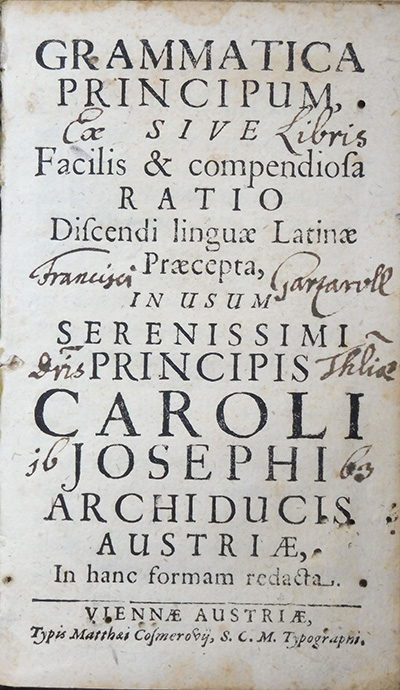 GRAMMATICA
PRINCIPUM,
Ex SIVE Libris
Facilis & compendioſa
RATIO
Diſcendi linguæ Latinæ
Franciſci Præcepta, Garzaroll
IN USUM
SERENISSIMI
PRINCIPIS
CAROLI
16 JOSEPHI 63
ARCHIDUCIS
AUSTRIÆ,
In hanc formam redacta.
VIENNÆ AUSTRIÆ,
Typis Matthæi Coſmerovij, S. C. M. Typographi.